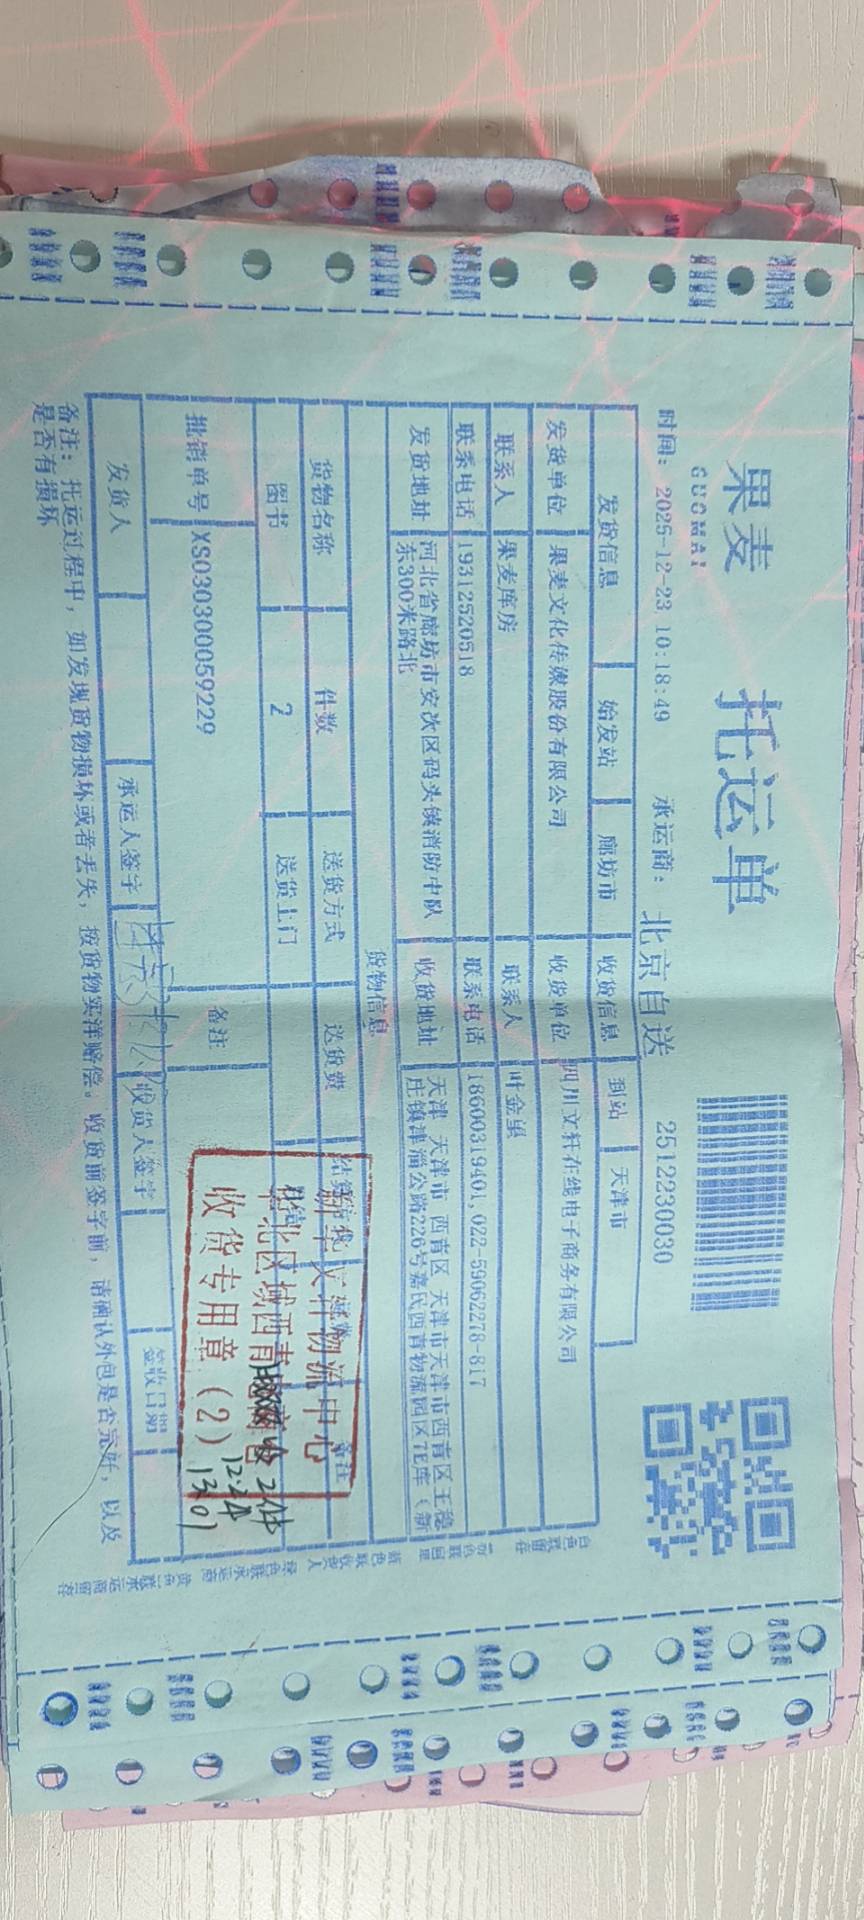 果麦
GUOMAI
托运单
时间： 2025-12-23 10:18:49 承运商： 北京自送 2512230030
发货信息 始发站 廊坊市 收货信息 到站 天津市
发货单位 果麦文化传媒股份有限公司 收货单位 四川文轩在线电子商务有限公司
联系人 果麦库房 联系人 叶金星
联系电话 19312520518 联系电话 18600319401,022-59062278-817
发货地址 河北省廊坊市安次区码头镇消防中队东300米路北 收货地址 天津 天津市 西青区 天津市天津市西青区王稳庄镇津淄公路226号嘉民西青物流园区7E库（新
货物信息
货物名称 件数 送货方式 送货费 备注
图书 2 送货上门
批销单号 XS030300059229 备注
新华文轩物流中心
华北区域西青电商仓
收货专用章（2）
收2件
12.24
13:01
发货人 承运人签字 收货人签字 签收日期
备注：托运过程中，如发现货物损坏或者丢失，按货物实洋赔偿。收货前签字前，请确认外包是否完好，以及
是否有损坏